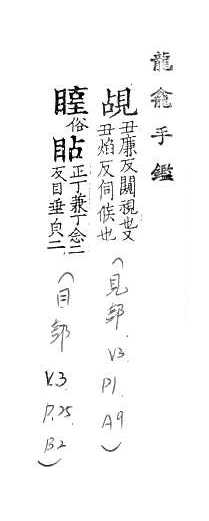 龍龕手鑑
覘丑廉反闚視也又
丑焰反伺候也
(見部 V3. P1 A9)
俗
眈正丁兼丁念二
反目垂皃二
(目部 V.3 P.25 B2)